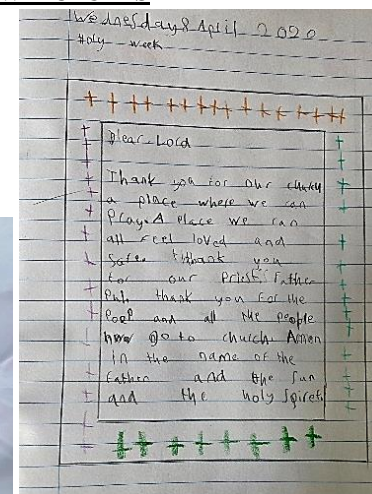 Wednesday 8 April 2020
Holy week
Dear Lord
Thank you for our church
a place where we can
pray. A place we can
all feel loved and
safe. thank you
for our priest Father
thank you for the
PoeP and all the people
how go to church. Amen
in the name of the
Father and the Sun
and the holy Spiret